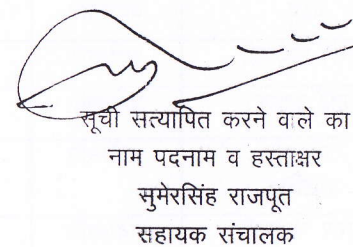 सूची सत्यापित करने वाले का
नाम पदनाम व हस्ताक्षर
सुमेरसिंह राजपूत
सहायक संचालक